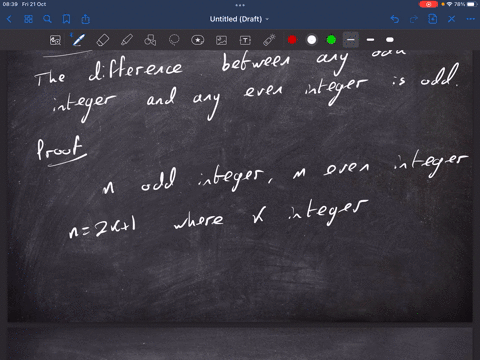 08:39 Fri 21 Oct
78%
Untitled (Draft)
The difference between any odd
integer and any even integer is odd.
Proof
n odd integer, m even integer
n=2k+1 where k integer